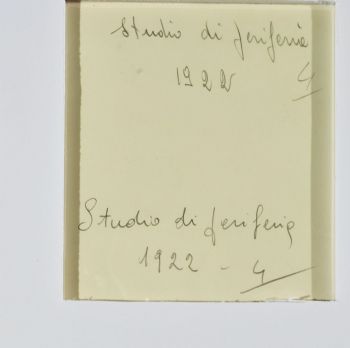 Studio di periferia
1922 4
Studio di periferia
1922 - 4